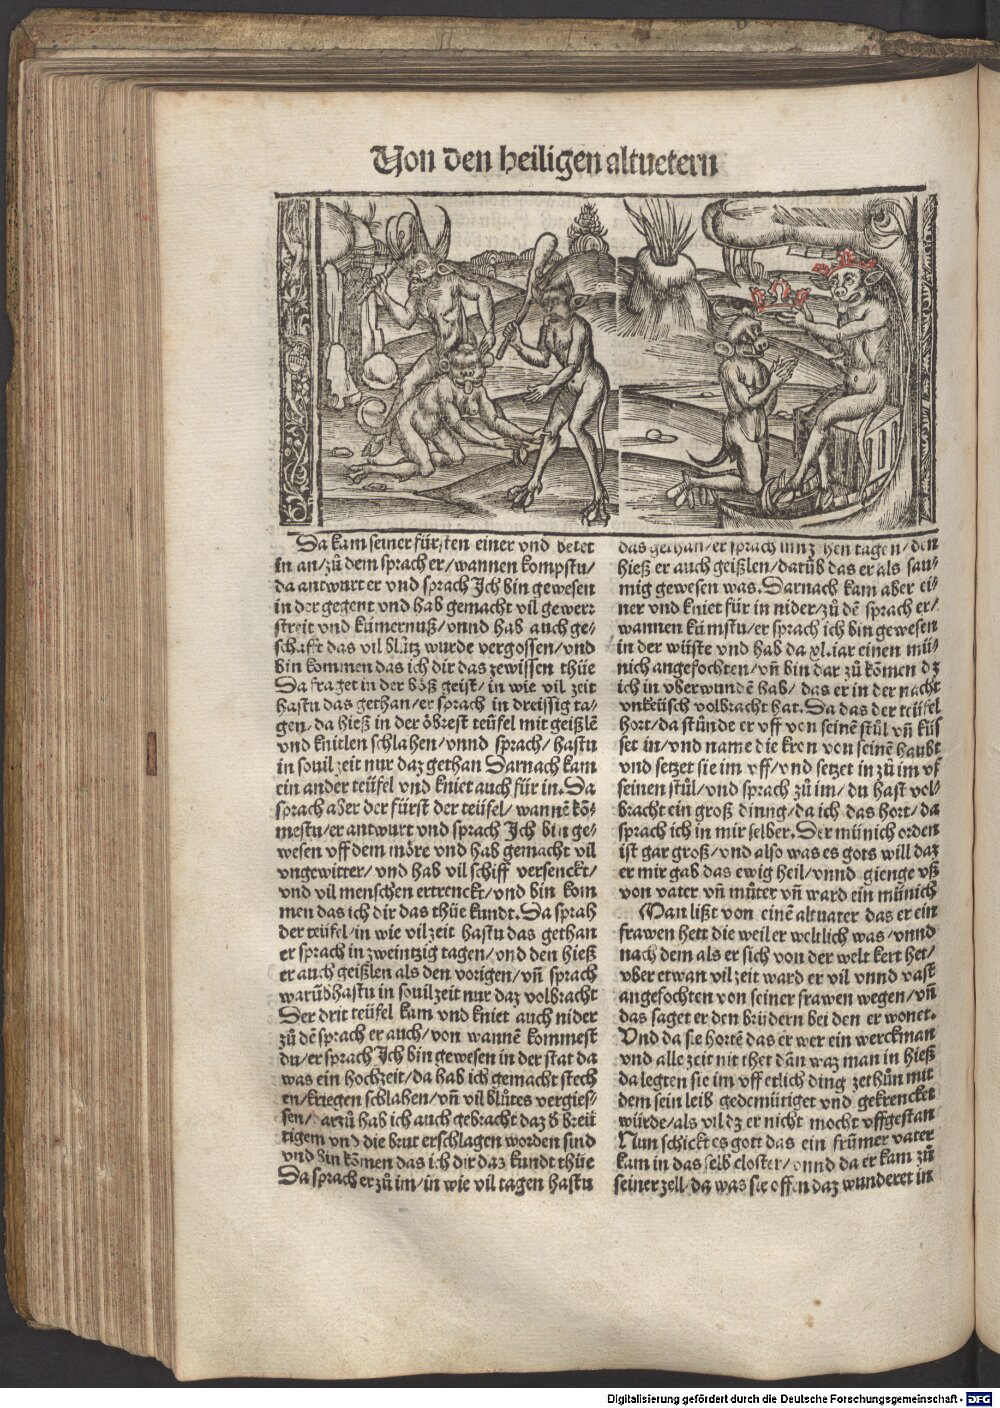 Von den heiligen altuetern
Da kam seiner fürsten einer vnd betet
in an/zů dem sprach er/wannen kompstu/
da antwurt er vnd sprach Ich bin gewesen
in der gegent vnd hab gemacht vil gewerr
streit vnd kümernuß/vnnd hab auch ge-
schafft das vil blůtz wurde vergossen/vnd
bin kommen das ich dir das zewissen thüe
Da fraget in der böß geist/in wie vil zeit
hastu das gethan/er sprach in dreissig ta-
gen/da hieß in der öbrest teüfel mit geißlē
vnd knitlen schlahen/vnnd sprach/hastu
in souil zeit nur daz gethan Darnach kam
ein ander teüfel vnd kniet auch für in.Da
sprach aber der fürst der teüfel/wannē kō-
mestu/er antwurt vnd sprach Ich bin ge-
wesen vff dem möre vnd hab gemacht vil
vngewitter/vnd hab vil schiff versenckt/
vnd vil menschen ertrenckt/vnd bin kom
men das ich dir das thüe kundt.Da sprah
der teüfel/in wie vil zeit hastu das gethan
er sprach in zweintzig tagen/vnd den hieß
er auch geißlen als den vorigen/vn̄ sprach
warūb hastu in souil zeit nur daz volbracht
Der drit teüfel kam vnd kniet auch nider
zů dē sprach er auch/von wannē kommest
du/er sprach Ich bin gewesen in der stat da
was ein hochzeit/da hab ich gemacht stech
en/kriegen schlahen/vn̄ vil blůtes vergies-
sen/darzů hab ich auch gebracht daz d breü
tigem vnd die brut erschlagen worden sind
vnd bin kōmen das ich dir daz kundt thüe
Da sprach er zů im/in wie vil tagen hastu
das gethan/er sprach inn zehen tagen/den
hieß er auch geißlen/darūb das er als sau-
mig gewesen was.Darnach kam aber ei-
ner vnd kniet für in nider/zů dē sprach er/
wannen kümstu/er sprach ich bin gewesen
in der wüste vnd hab da xl.iar einen mü-
nich angefochten/vn̄ bin dar zů kōmen dz
ich in vberwundē hab/das er in der nacht
vnkeüsch volbracht hat.Da das der teüfel
hort/da stůnde er vff von seinē stůl vn̄ küs
set in/vnd name die kron von seinē haubt
vnd setzet sie im vff/vnd setzet in zů im vf
seinen stůl/vnd sprach zů im/du hast vol-
bracht ein groß dinng/da ich das hort/da
sprach ich in mir selber.Der münich orden
ist gar groß/vnd also was es gots will daz
er mir gab das ewig heil/vnnd gienge vß
von vater vn̄ můter vn̄ ward ein münich
Man lißt von einē altuater das er ein
frawen hett die weil er weltlich was/vnnd
nach dem als er sich von der welt kert het/
vber etwan vil zeit ward er vil vnnd vast
angefochten von seiner frawen wegen/vn̄
das saget er den brüdern bei den er wonet.
Vnd da sie hortē das er wer ein werckman
vnd alle zeit nit thet dān waz man in hieß
da legten sie im vff etlich ding zethůn mit
dem sein leib gedemütiget vnd gekrencket
würde/als vil dz er nicht mocht vffgestan
Nun schickt es gott das ein frümer vater
kam in das selb closter/vnnd da er kam zů
seiner zell/da was sie offen daz wunderet in
Digitalisierung gefördert durch die Deutsche Forschungsgemeinschaft - DFG